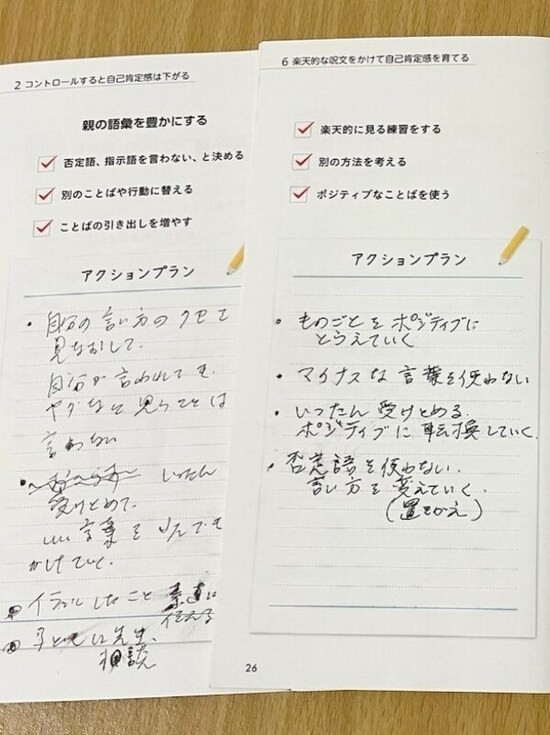 2 コントロールすると自己肯定感は下がる
親の語彙を豊かにする
否定語、指示語を言わない、と決める
別のことばや行動に替える
ことばの引き出しを増やす
アクションプラン
・自分の言い方のクセを
見なおして、
自分が言われても
ヤダなと思うことは
言わない
いったん
受けとめて、
いい言葉を
かけていく。
イラッとしたこと 素直に
伝える
子どもに先生、
相談
6 楽天的な呪文をかけて自己肯定感を育てる
楽天的に見る練習をする
別の方法を考える
ポジティブなことばを使う
アクションプラン
・ものごとをポジティブに
とらえていく
・マイナスな言葉を使わない
・いったん受けとめる。
ポジティブに転換していく。
・否定語を使わない。
言い方を変えていく。
(置きかえ)
26